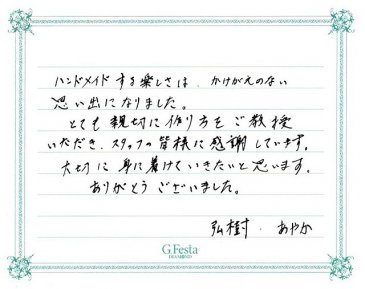 ハンドメイドする楽しさは、かけがえのない
思い出になりました。
とても親切に作り方をご教授
いただき、スタッフの皆様に感謝しています。
大切に身に着けていきたいと思います。
ありがとうございました。
弘樹・あやか
G.Festa
DIAMOND